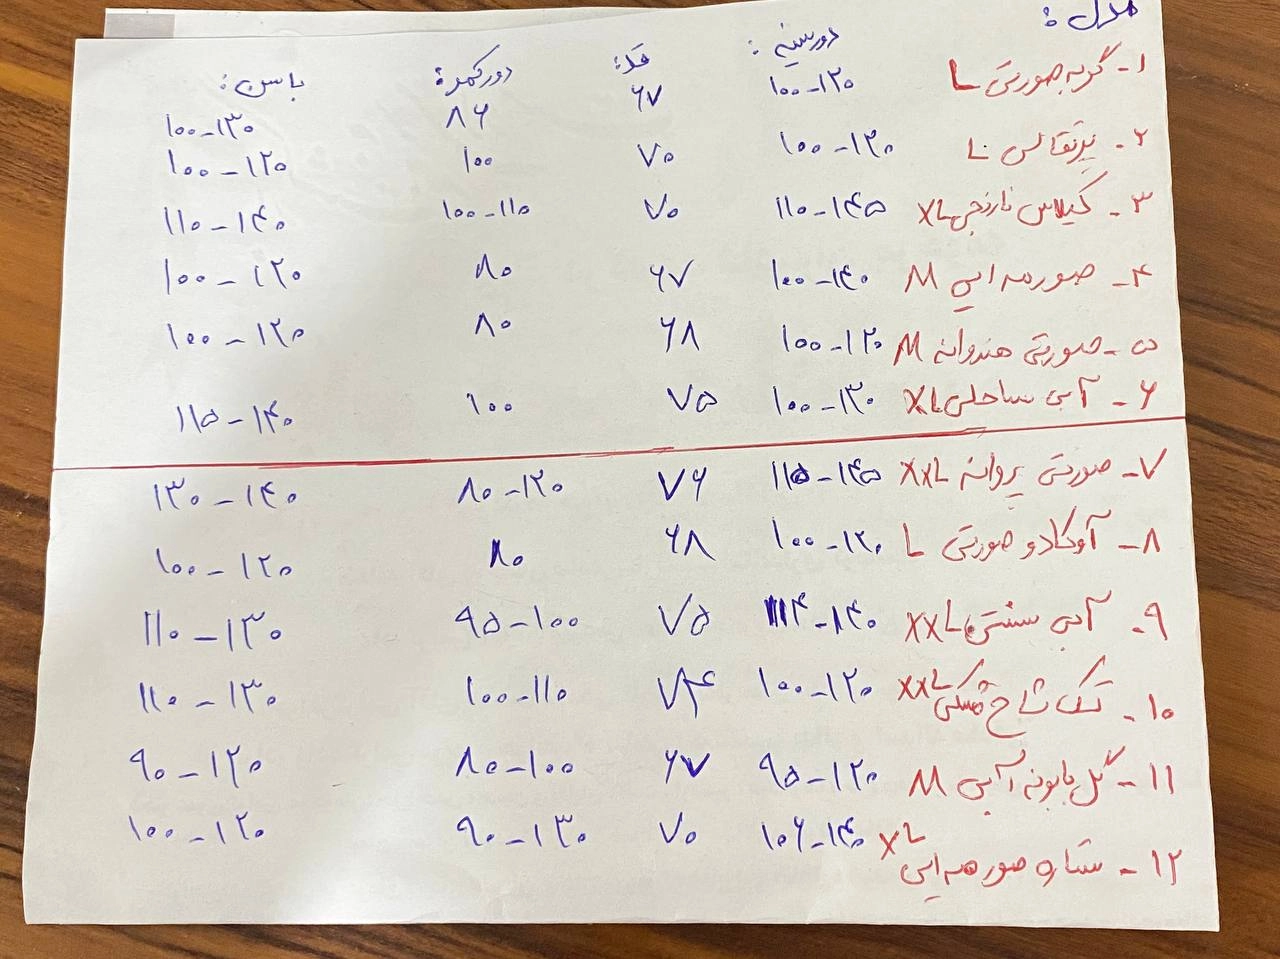 مدل: دورسینه: قد: دورکمر: باسن:
۱- گربه صورتی L ۱۰۰-۱۲۰ ۶۷ ۸۶ ۱۰۰-۱۳۰
۲- پرتقالی L ۱۰۰-۱۳۰ ۷۰ ۱۰۰ ۱۰۰-۱۲۰
۳- گیلاس نارنجی XL ۱۱۰-۱۴۵ ۷۰ ۱۰۰-۱۱۰ ۱۱۰-۱۴۰
۴- صورمه ایی M ۱۰۰-۱۴۰ ۶۷ ۸۰ ۱۰۰-۱۲۰
۵- صورتی هندوانه M ۱۰۰-۱۲۰ ۶۸ ۸۰ ۱۰۰-۱۲۰
۶- آبی ساحلی XL ۱۰۰-۱۳۰ ۷۵ ۱۰۰ ۱۱۵-۱۴۰
۷- صورتی پروانه XXL ۱۱۵-۱۴۵ ۷۶ ۸۰-۱۲۰ ۱۳۰-۱۴۰
۸- آوکادو صورتی L ۱۰۰-۱۲۰ ۶۸ ۸۰ ۱۰۰-۱۲۰
۹- آبی سنتی XXL ۱۴۰ ۷۵ ۹۵-۱۰۰ ۱۱۰-۱۳۰
۱۰- تک شاخ مشکی XXL ۱۰۰-۱۲۰ ۷۴ ۱۰۰-۱۱۰ ۱۱۰-۱۳۰
۱۱- گل بابونه آبی M ۹۵-۱۲۰ ۶۷ ۸۰-۱۰۰ ۹۰-۱۲۰
۱۲- ستاره صورمه ایی XL ۱۰۶-۱۴۰ ۷۰ ۹۰-۱۳۰ ۱۰۰-۱۲۰